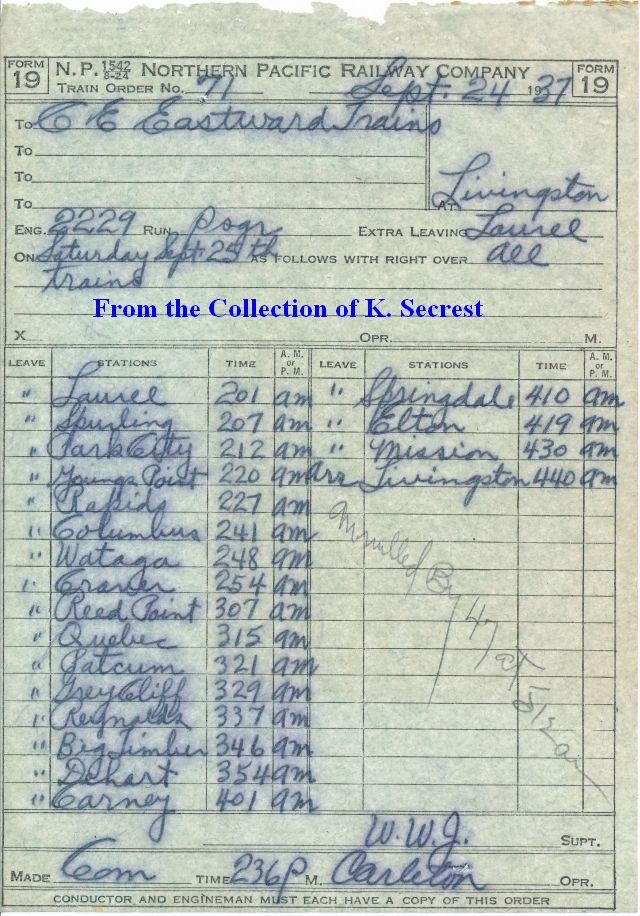 FORM 19 N.P. 1542 8-24 NORTHERN PACIFIC RAILWAY COMPANY FORM 19
TRAIN ORDER NO. 71 Sept. 24 1937
To C E Eastward Trains
To
To
To Livingston
AT
ENG. 2229 RUN Psgr EXTRA LEAVING Laurel
ON Saturday Sept 25th AS FOLLOWS WITH RIGHT OVER all
trains
From the Collection of K. Secrest
X OPR. M.
LEAVE STATIONS TIME A. M. or P. M. LEAVE STATIONS TIME A. M. or P. M.
" Laurel 201 am " Springdale 410 am
" Spurling 207 am " Elton 419 am
" Park City 212 am " Mission 430 am
" Youngs Point 220 am Arr Livingston 440 am
" Rapids 227 am
" Columbus 241 am
" Wataga 248 am
" 254 am
" Reed Point 307 am
" Quebec 315 am
" 321 am
" Grey Cliff 329 am
" Reynolds 337 am
" Big Timber 346 am
" Dehart 354 am
" Carney 401 am
Annulled By 47 at 512 am
W.W.J. SUPT.
MADE Com TIME 236 P M. Carleton OPR.
CONDUCTOR AND ENGINEMAN MUST EACH HAVE A COPY OF THIS ORDER